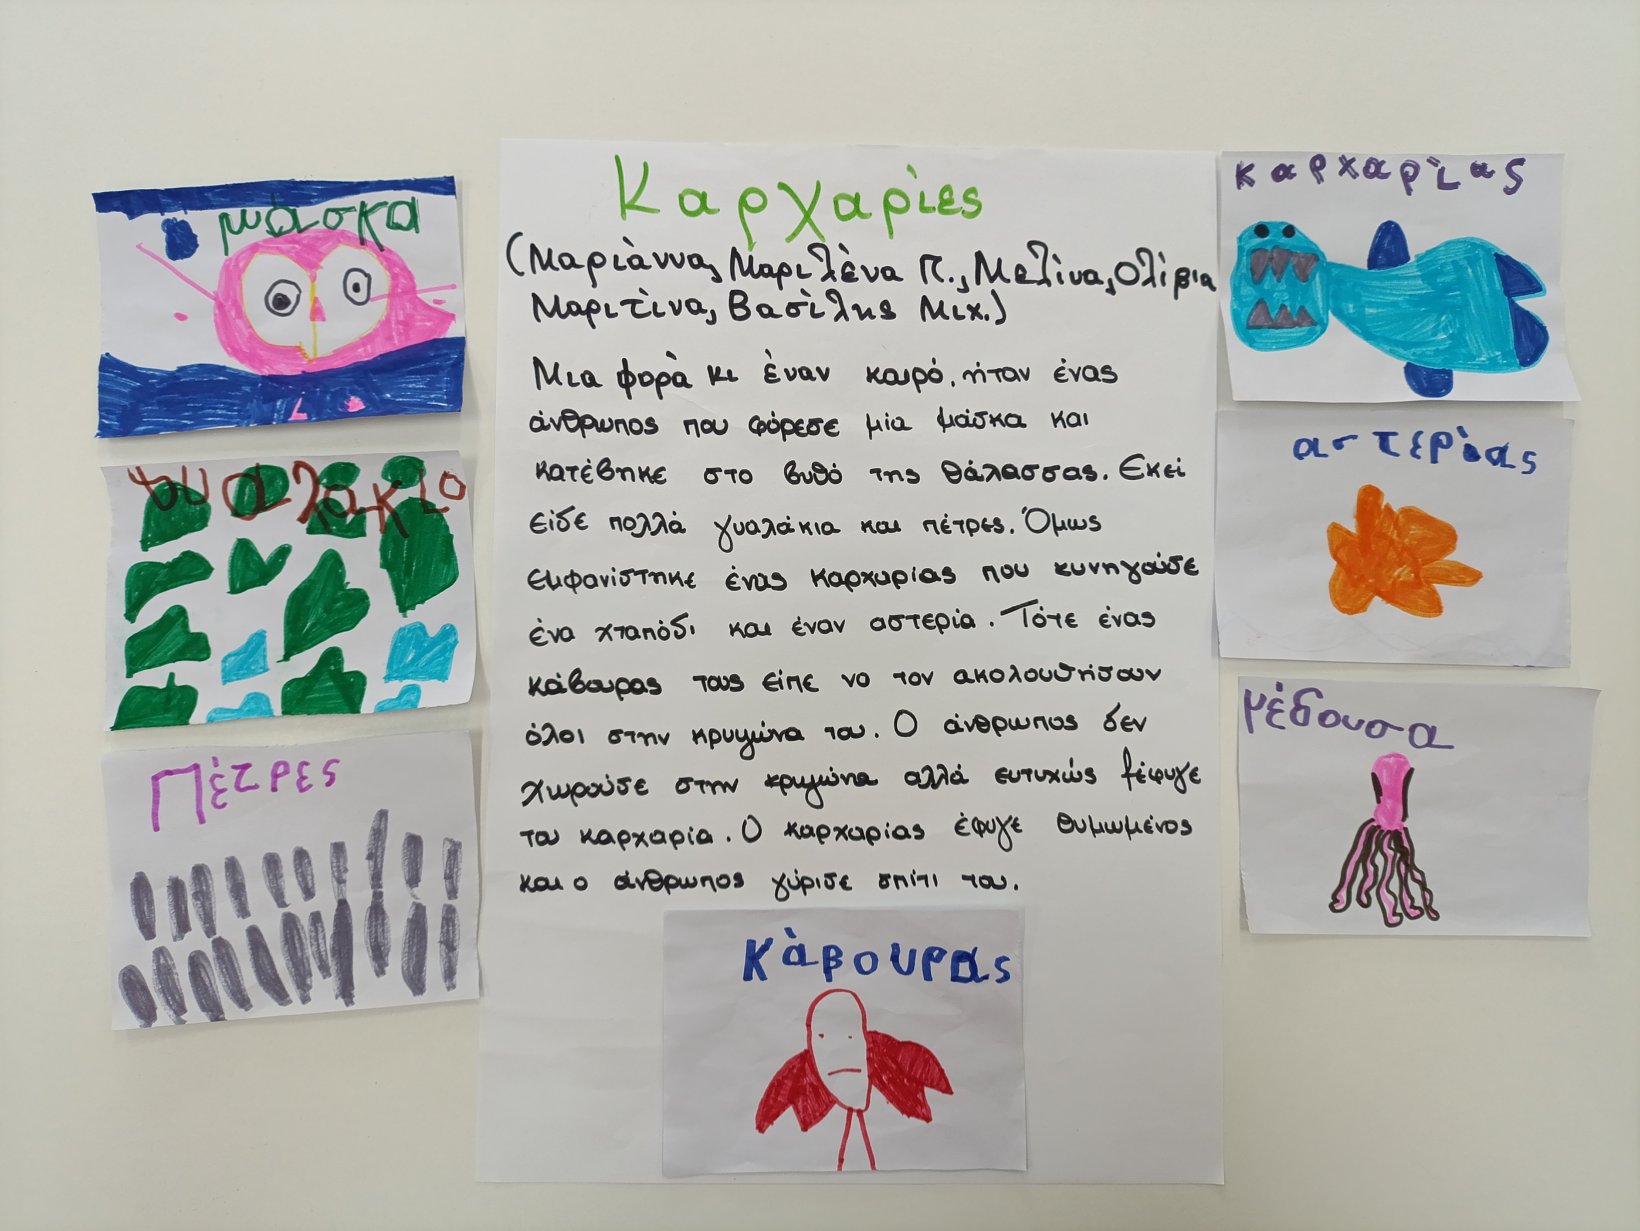 Καρχαρίες
(Μαριάννα, Μαριλένα Π., Μελίνα, Ολίβια
Μαριτίνα, Βασίλης Μιχ.)
Μια φορά κι έναν καιρό, ήταν ένας
άνθρωπος που φόρεσε μία μάσκα και
κατέβηκε στο βυθό της θάλασσας. Εκεί
είδε πολλά γυαλάκια και πέτρες. Όμως
εμφανίστηκε ένας καρχαρίας που κυνηγούσε
ένα χταπόδι και έναν αστερία. Τότε ένας
κάβουρας τους είπε να τον ακολουθήσουν
όλοι στην κρυψώνα του. Ο άνθρωπος δεν
χωρούσε στην κρυψώνα αλλά ευτυχώς ξέφυγε
του καρχαρία. Ο καρχαρίας έφυγε θυμωμένος
και ο άνθρωπος γύρισε σπίτι του.
μάσκα
γυαλάκιο
Πέτρες
καρχαρίας
αστερίας
μέδουσα
κάβουρας